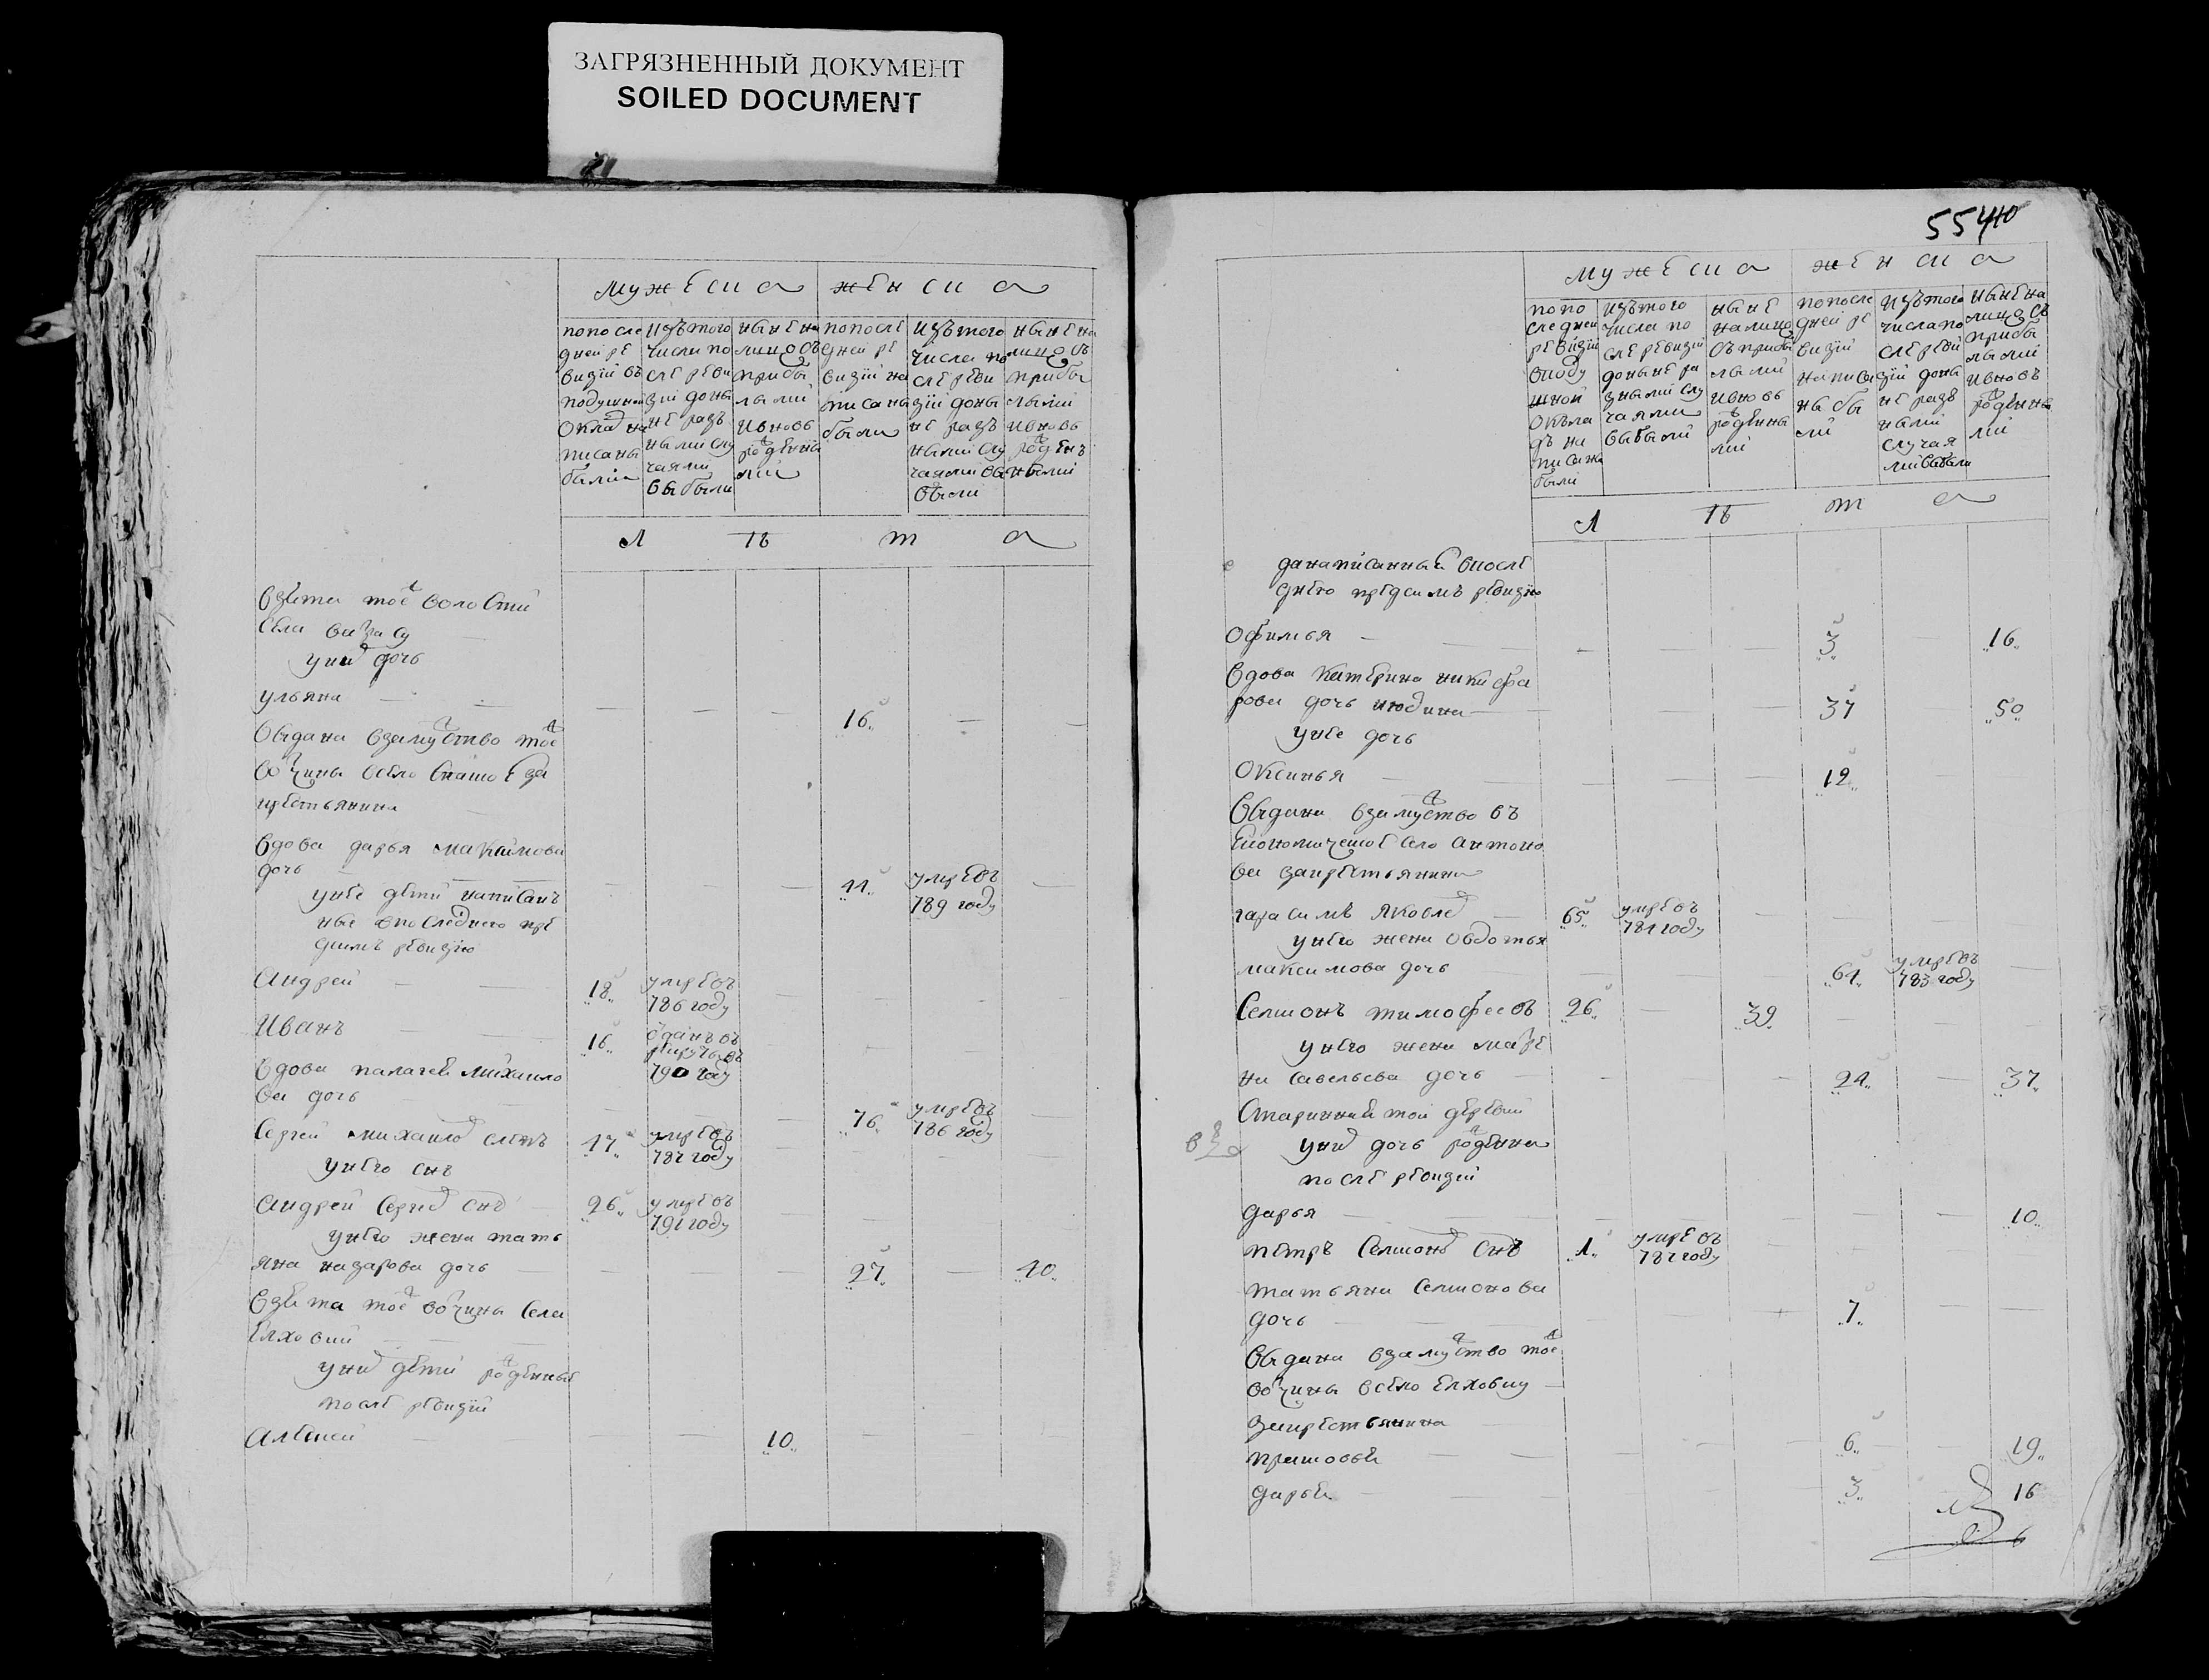 ЗАГРЯЗНЕННЫЙ ДОКУМЕНТ
SOILED DOCUMENT
мужеска
женска
по после
дней ре
визiи въ
подушной
окладъ на
писаны
были
изътого
числа по
сле реви
зiи доны
не разъ
ными слу
чаями
выбыли
ныне на
лицо съ
прибы
лыми
ивновь
рожденны
ми
по после
дней ре
визiи на
писаны
были
изътого
числа по
сле реви
зiи доны
не разъ
ными слу
чаями вы
были
ныне на
лицо съ
прибы
лыми
ивновь
рожденъ
ными
л ѣ т а
взята тоѣ волости
села
у них дочь
ульяна 16
Выдана взамуство тоѣ
вочины всело за
крестьянина
вдова дарья максимова
дочь 41 умре въ 789 году
унее дети написанъ
ные впоследнюю пре
дписмъ ревизiю
Андрей 18 умре въ 786 году
Иванъ 16 оданъ въ рекруты въ 790 году
вдова палагея михайло
ва дочь 76 умре въ 786 году
Сергей михайло сынъ 47 умре въ 787 году
унего снъ
андрей Сергее снъ 26 умре въ 791 году
унего жена тать
яна назарова дочь 27 40
Взята тоѣ вочины села
Елховки
уних дети рожденные
после ревизiи
Алексей 10
55 410
мужеска
женска
по по
следней
ревизiи
вподу
шной
окъла
дъ на
писаны
были
изътого
числа по
сле ревизiи
доныне ра
зными слу
чаями
выбыли
ныне
налицо
съ прибы
лыми
ивновь
рожденны
ми
по после
дней ре
визiи
написа
ны бы
ли
изътого
числа по
сле реви
зiи доны
не разъ
ными
случая
ми выбыли
ныне на
лицо съ
прибы
лыми
ивновь
рожденны
ми
л ѣ т а
да написанные впосле
днюю предсимъ ревизiю
офимья 3 16
вдова катерина никифа
рова дочь июдина 37 50
унее дочь
Оксинья 12
Выдана взамуство въ
Економическое село антоно
ва закрестьянина
гарасимъ яковле 65 умре въ 784 году
унего жена овдотья
максимова дочь 64 умре въ 783 году
Семионъ тимофеевъ 26 39
унего жена маре
на савельева дочь 24 37
Старинные той деревни
уних дочь рожденна
после ревизiи
дарья 10
петръ Семионо снъ 1 умре въ 782 году
татьяна семионова
дочь 7
Выдана взамуство тоѣ
вочины всело Елховку
закрестьянина
прасковья 6 19
дарья 3 16